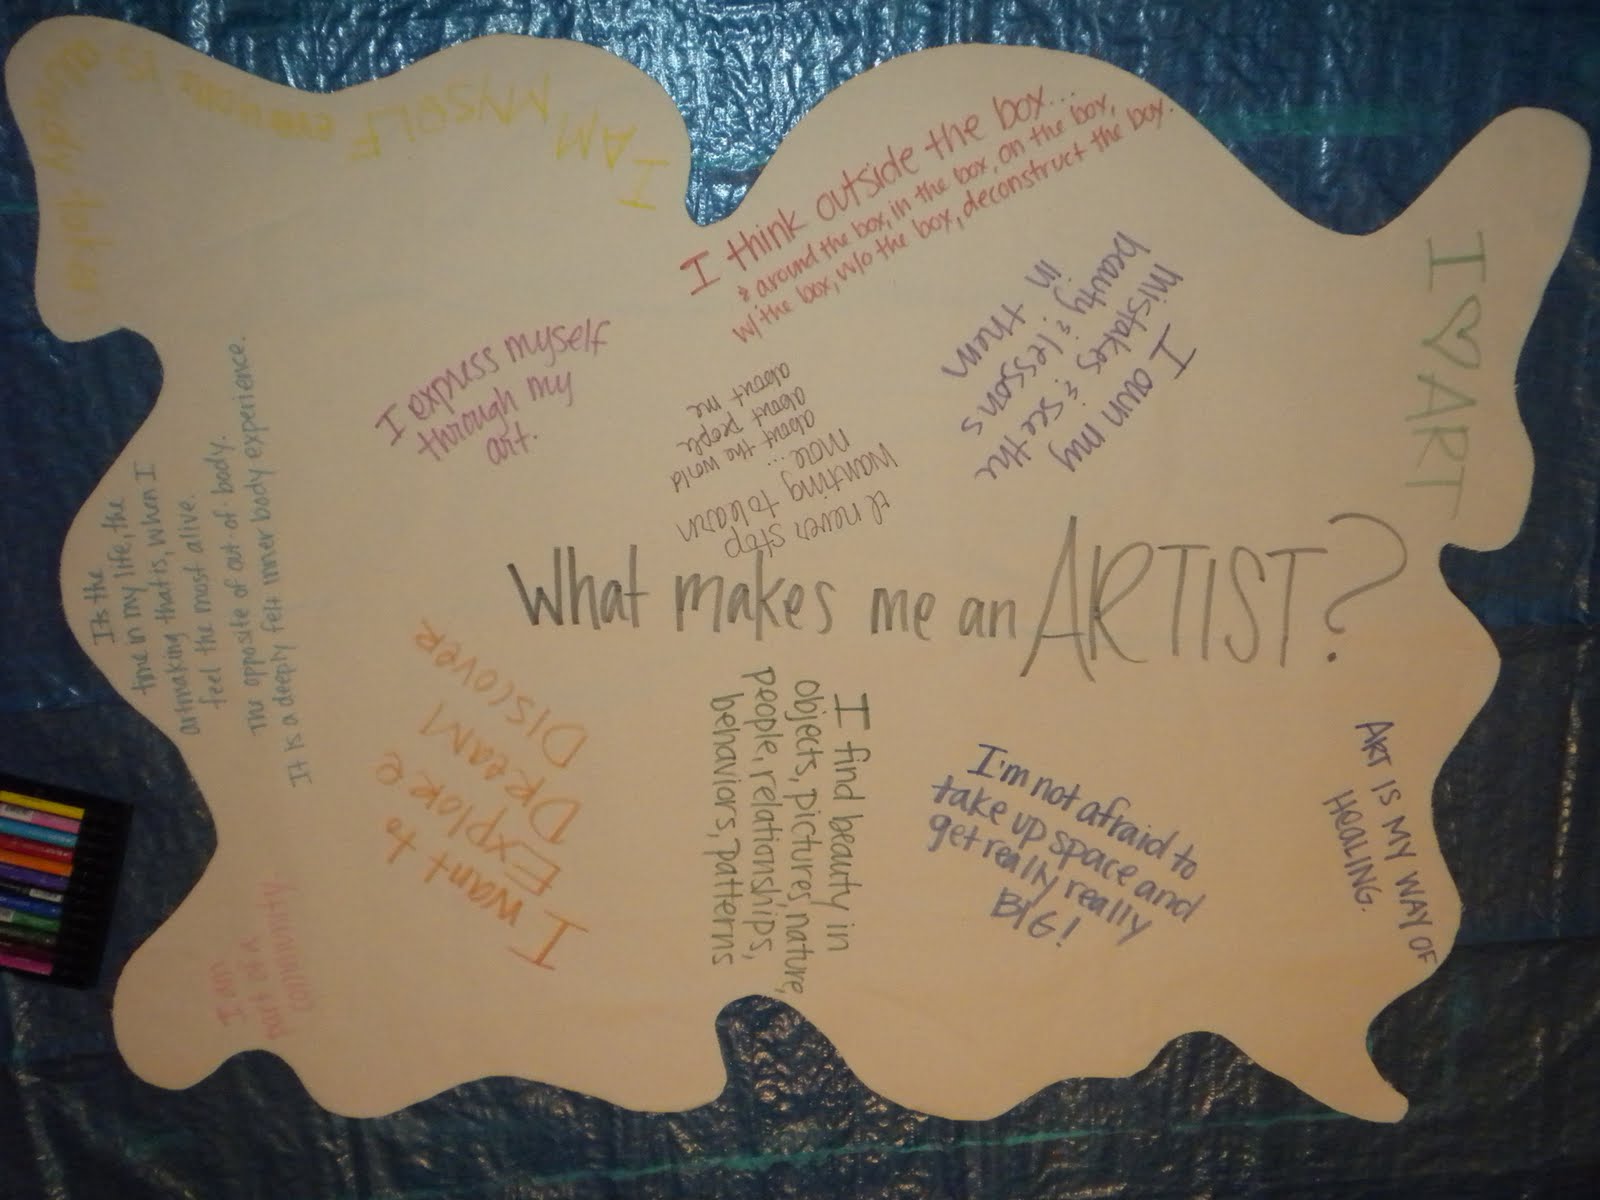 What makes me an ARTIST?
I AM MYSELF everyone is
already taken
I think outside the box...
& around the box, in the box, on the box,
w/the box, w/o the box, deconstruct the box.
I own my
mistakes & see the
beauty & lessons
in them
I ♡ ART
I express myself
through my
art.
I never stop
wanting to learn
more...
about the world
about people
about me
Its the
time in my life, the
artmaking that is, when I
feel the most alive.
The opposite of out-of-body.
It is a deeply felt inner body experience.
I want to
Explore
Dream
Discover
I find beauty in
objects, pictures, nature,
people, relationships,
behaviors, patterns
I'm not afraid to
take up space and
get really really
BIG!
ART IS MY WAY OF
HEALING.
I am
part of a
community.